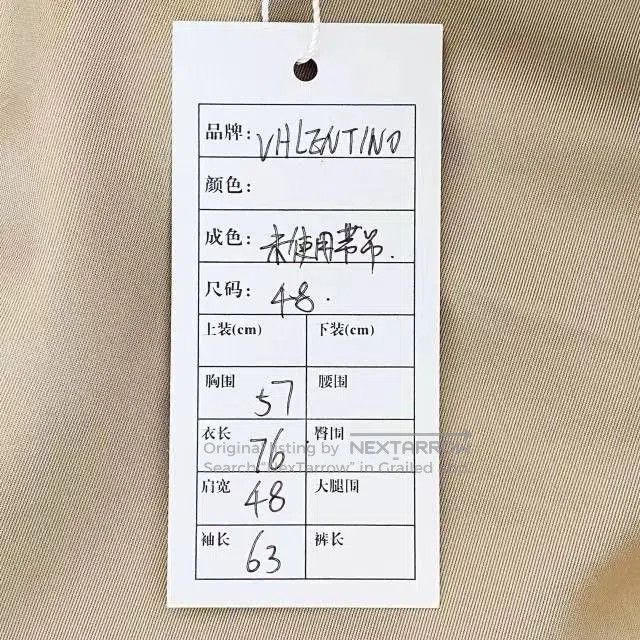 品牌: VALENTINO
颜色:
成色: 未使用带吊.
尺码: 48.
上装(cm) 下装(cm)
胸围 57 腰围
衣长 76 臀围
Original listing by NEXTARROW
Search "NexTarrow" in Grailed
肩宽 48 大腿围
袖长 63 裤长